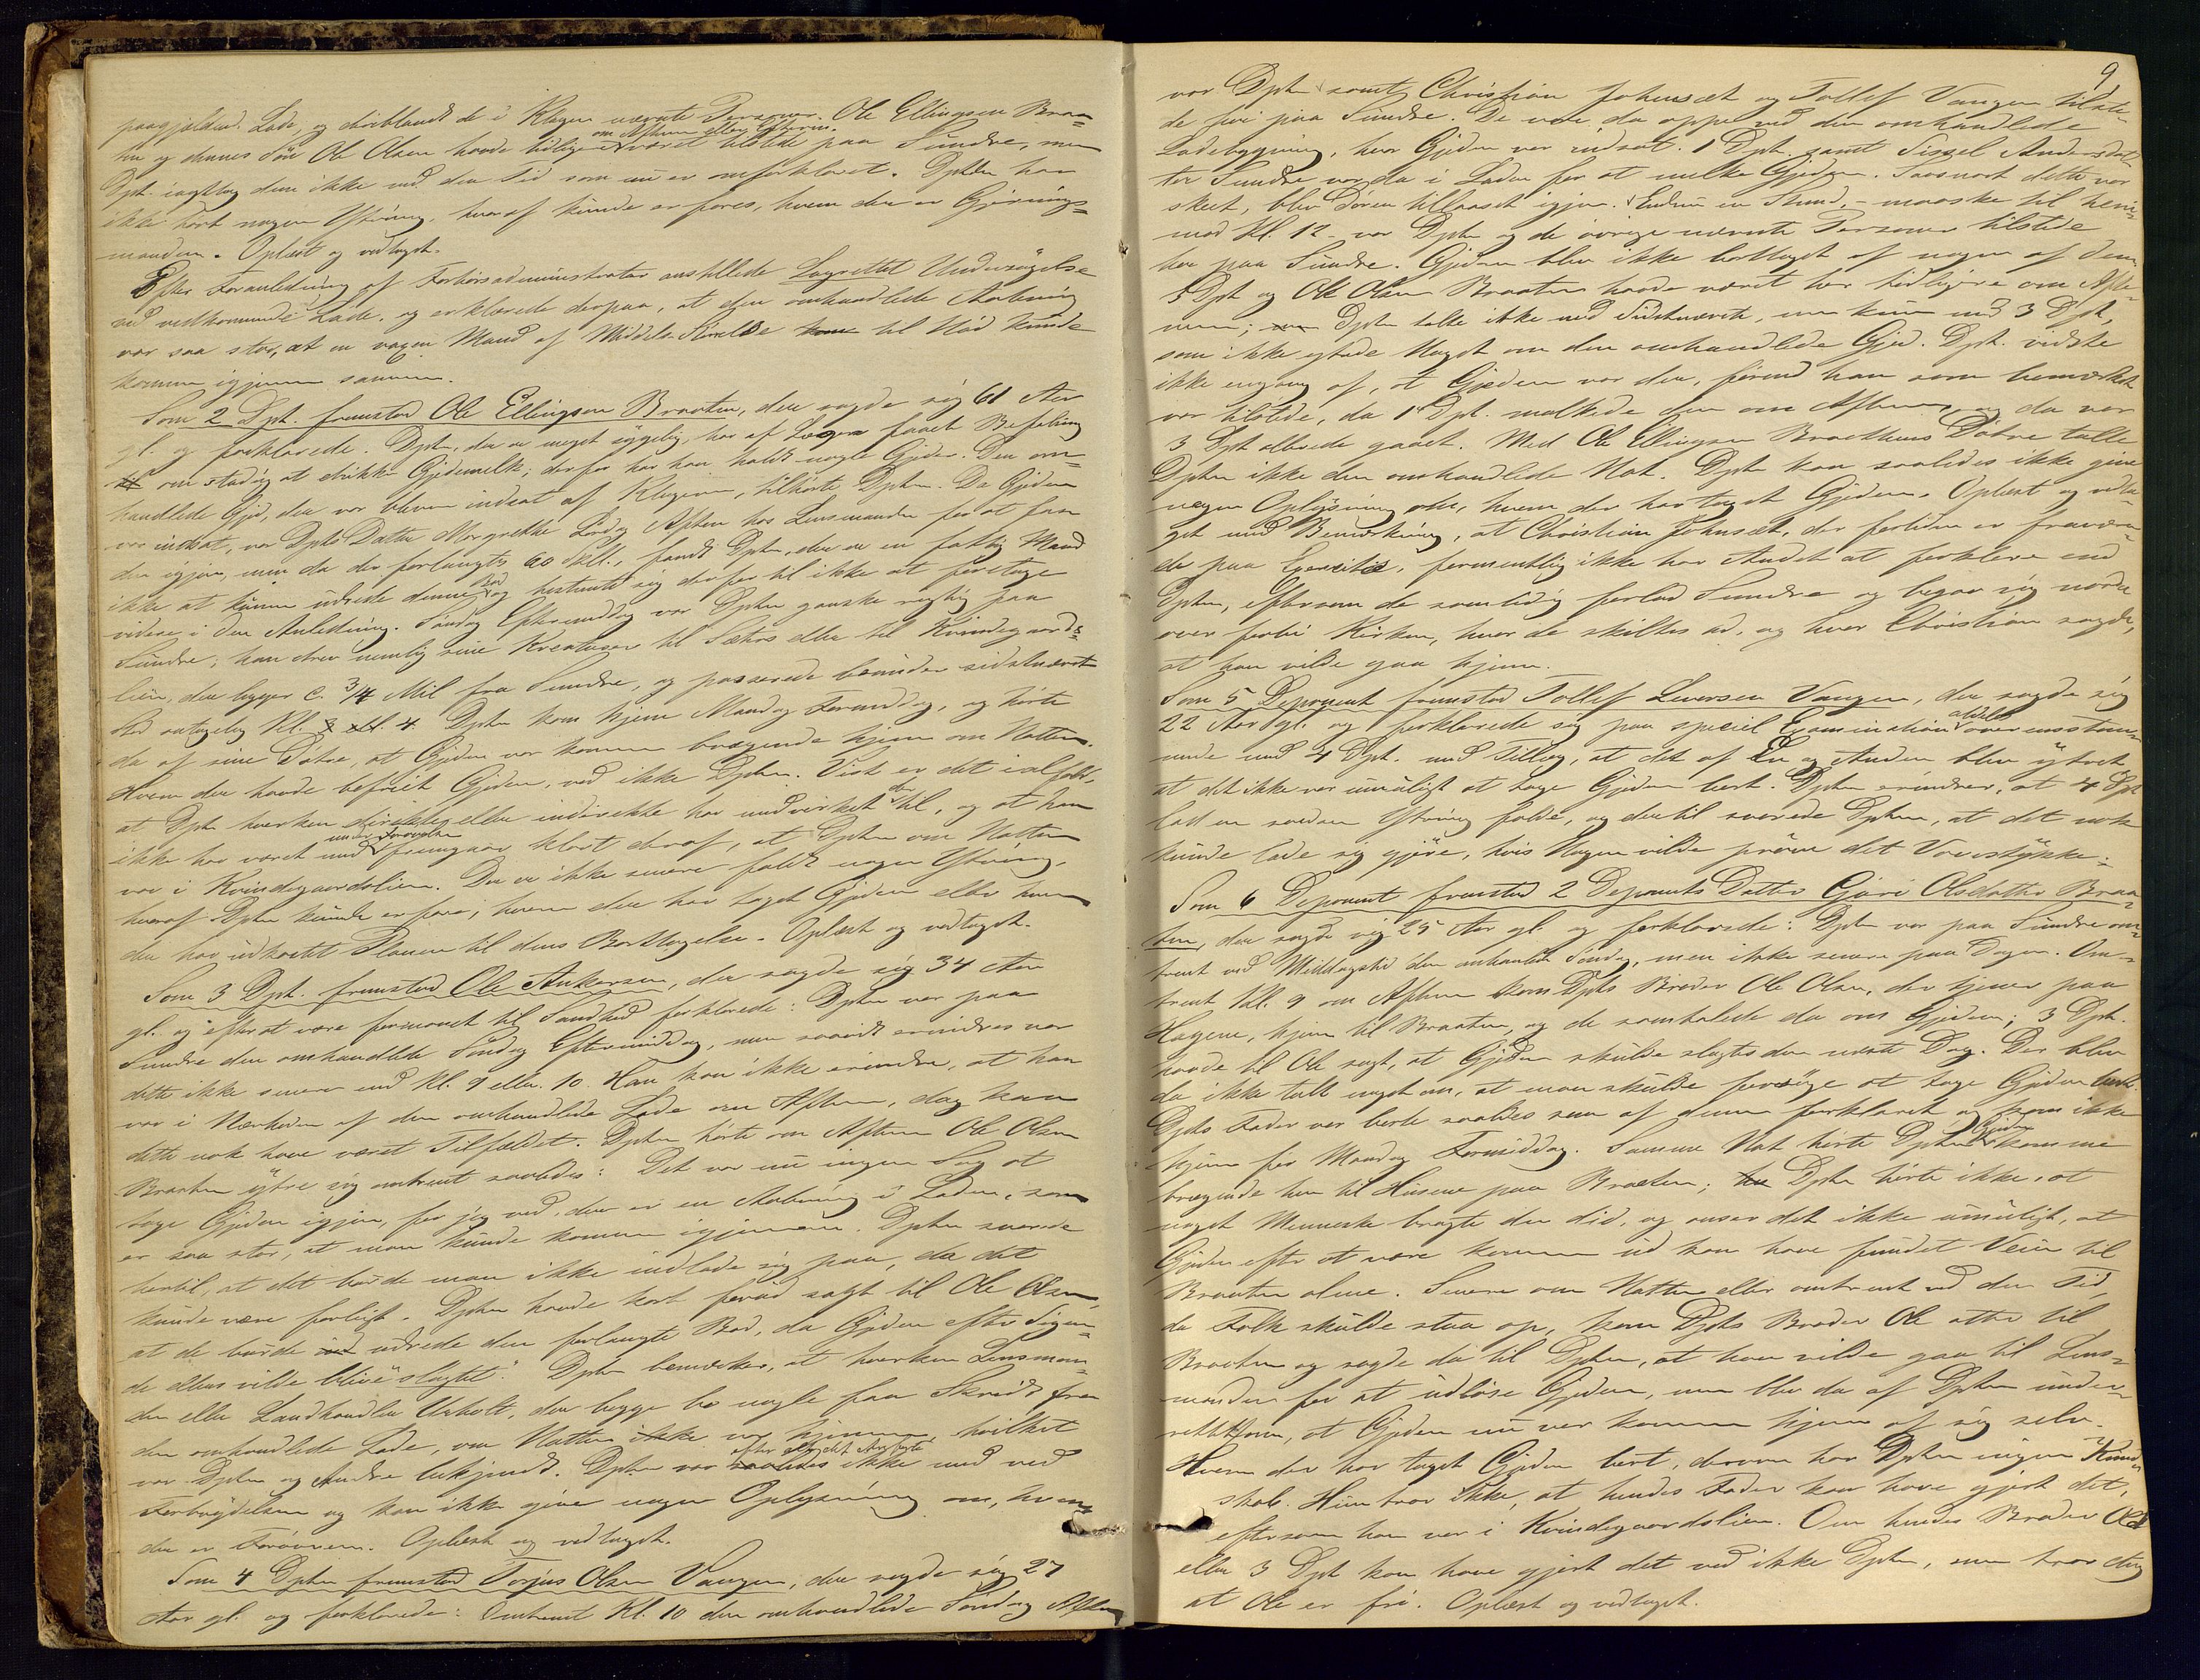 paagjældende Lade, og deriblandt de i Klagen nævnte Personer. Ole Ellingsen Braa-
ten og dennes Søn Ole Olsen havde tidligere om Aftenen eller Efterm. været tilstede paa Sundre, men
Dpt. iagttog dem ikke ved den Tid som nu er omforklaret. Dptn har
ikke hørt nogen Ytring, hvoraf kunde erfares, hvem der er Gjernings-
manden. Oplæst og vedtaget.
Efter Foranledning af Forhørsadministrator anstillede Lagrettet Undersøgelse
ved vedkommende Lade, og erklærede derpaa, at den omhandlede Aabning
var saa stor, at en voxen Mand af Middels-Størrelse til Nød kunde
komme igjennem samme.
Som 2 Dpt. fremstod Ole Ellingsen Braaten, der sagde sig 61 Aar
gl. og forklarede. Dptn, der er meget sygelig, har af Lægen faaet Befaling
om stadig at drikke Gjedemelk; derfor har han holdt nogle Gjeder. Den om-
handlede Gjed, der var bleven indsat af Klageren, tilhørte Dptn. Da Gjeden
var indsat, var Dpts Datter Margrethe Lørdag Aften hos Lensmanden for at faa
den igjen, men da der forlangtes 60 Skll., fandt Dptn, der er en fattig Mand
ikke at kunne udrede denne Bod og bestemte sig derfor til ikke at foretage
videre i den Anledning. Søndag Eftermiddag var Dptn ganske rigtig paa
Sundre; han drev nemlig sine Kreaturer til Sæters eller til Kvindegaards-
lien, der ligger c. 3/4 Mil fra Sundre, og passerede sidstnævnte
Sted antagelig Kl. 4. Dptn kom hjem Mandag Formiddag, og hørte
da af sine Døtre, at Gjeden var kommen brægende hjem om Natten.
Hvem der havde befriet Gjeden, ved ikke Dptn. Vist er det i alfald,
at Dptn hverken direkte eller indirekte har medvirket der til, og at han
ikke har været med under Forøvelsen fremgaar klart deraf, at Dptn om Natten
var i Kvindegaardslien. Der er ikke senere faldt nogen Ytring,
hvoraf Dptn kunde erfare, hvem der har taget Gjeden eller hvem
der har udkastet Planen til dens Borttagelse. Oplæst og vedtaget.
Som 3 Dpt. fremstod Ole Ankersen, der sagde sig 34 Aar
gl. og efter at være formanet til Sandhed forklarede: Dptn var paa
Sundre den omhandlede Søndag Eftermiddag, men saavidt erindres var
dette ikke senere end Kl. 9 eller 10. Han kan ikke erindre, at han
var i Nærheden af den omhandlede Lade om Aftenen, dog kan
dette nok have været Tilfældet. Dptn hørte om Aftenen Ole Olsen
Braaten ytre sig omtrent saaledes: Det var nu ingen Sag at
tage Gjeden igjen, for jeg ved, der er en Aabning i Laden, som
er saa stor, at man kunde komme igjennem. Dptn svarede
hertil, at det burde man ikke indlade sig paa, da det
kunde være farligt. Dptn havde kort forud sagt til Ole Olsen,
at de burde udrede den forlangte Bod, da Gjeden efter Sigen-
de ellers vilde blive "slagtet". Dptn bemærker, at hverken Lensman-
den eller Landhandler Uxholt, der begge bo nogle faa Skridt fra
den omhandlede Lade, om Natten ikke var hjemme, hvilket
var Dptn og Andre bekjendt. Dptn var efter ikke med ved
Forbrydelsen og kan ikke give nogen Oplysning om, hvem
der er Forøveren. Oplæst og vedtaget.
Som 4 Dptn fremstod Torjus Olsen Vangen, der sagde sig 27
Aar gl. og forklarede: Omtrent Kl. 10 den omhandlede Søndag Aften
9
var Dptn samt Christian Johnsæt og Tollef Vangen tilste-
de her paa Sundre. De vare da oppe ved den omhandlede
Ladebygning, hvor Gjeden var indsat. 1 Dpt. samt Sissel Andersdat-
ter Sundre var da i Laden for at melke Gjeden. Saasnart dette var
skeet, blev Døren tillaaset igjen. Endnu en Stund, - maaske til hen-
mod Kl. 12 - var Dptn og de øvrige nævnte Personer tilstede
her paa Sundre. Gjeden blev ikke borttaget af nogen af dem.
3 Dpt og Ole Olsen Braaten havde været her tidligere om Afte-
nen; Dptn talte ikke med Sidstnævnte, men kun med 3 Dpt,
som ikke ytrede Noget om den omhandlede Gjed. Dpt. vidste
ikke engang af, at Gjeden var der, førend han som bemærket
var tilstede, da 1 Dpt. melkede den om Aftenen, og da var
3 Dpt allerede gaaet. Med Ole Ellingsen Braathens Døtre talte
Dptn ikke den omhandlede Nat. Dptn kan saaledes ikke give
nogen Oplysning om, hvem der har taget Gjeden. Oplæst og vedta-
get med Bemærkning, at Christian Johnsæt, der fortiden er fraværen-
de paa Exercitie, formentlig ikke har Andet at forklare end
Dptn, eftersom de samtidig forlod Sundre og begav sig nord-
over forbi Kirken, hvor de skiltes ad, og hvor Christian sagde,
at han vilde gaa hjem.
Som 5 Deponent fremstod Tollef Leversen Vangen, der sagde sig
22 Aar gl. og forklarede sig paa speciel Examination aldeles overensstem-
mende med 4 Dpt. med Tillæg, at det af En og Anden blev ytret,
at det ikke var umuligt at tage Gjeden bort. Dptn erindrer, at 4 Dpt
lod en saadan Ytring falde, og dertil svarede Dptn, at det nok
kunde lade sig gjøre, hvis Nogen vilde prøve det Vovestykke.
Som 6 Deponent fremstod 2 Deponents Datter Guri Olsdatter Braa-
ten, der sagde sig 25 Aar gl. og forklarede: Dptn var paa Sundre om-
trent ved Middagstid den omhandlede Søndag, men ikke senere paa Dagen. Om-
trent Kl. 9 om Aftenen kom Dpts Broder Ole Olsen, der tjener paa
Hagene, hjem til Braaten, og de samtalede da om Gjeden; 3 Dpt.
havde til Ole sagt, at Gjeden skulde slagtes den næste Dag. Der blev
da ikke talt noget om, at man skulde forsøge at tage Gjeden bort.
Dpts Fader var borte saaledes som af denne forklaret og kom ikke
hjem før Mandag Formiddag. Samme Nat hørte Dptn Gjeden komme
brægende hen til Husene paa Braaten; Dptn hørte ikke, at
noget Menneske bragte den did, og anser det ikke umuligt, at
Gjeden efter at være kommen ud kan have fundet Veien til
Braaten alene. Senere om Natten eller omtrent ved den Tid,
da Folk skulde staa op, kom Dpts Broder Ole atter til
Braaten og sagde da til Dptn, at han vilde gaa til Lens-
manden for at udløse Gjeden, men blev da af Dptn under-
rettet om, at Gjeden nu var kommen hjem af sig selv.
Hvem der har taget Gjeden bort, derom har Dptn ingen Kund-
skab. Hun tror ikke, at hendes Fader kan have gjort det,
eftersom han var i Kvindegaardslien. Om hendes Broder Ole
eller 3 Dpt kan have gjort det ved ikke Dptn, men tror dog
at Ole er fri. Oplæst og vedtaget.